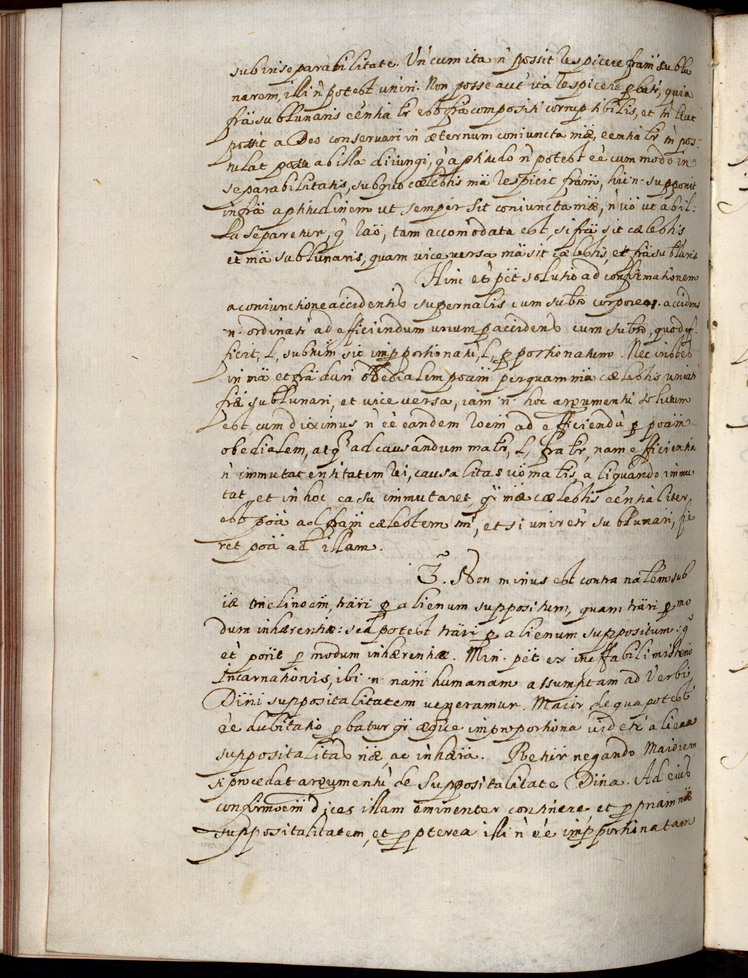 subinseparabilitate. Un cum ita n̄ possit respicere fram̄ sublu
narem, illi n̄ potest uniri. Non posse aut ita respicere pbat, quia
frā sublunaris eēntiatr est frā compositi corruptibilis, et tn̄ licet
possit a Deo conservari in æternum coniuncta māe, eēntiatr tn̄ pos-
tulat posse ab illa diiungi, q̄ aptitudo n̄ potest eē cum modo in
separabilitatis, sub quo cælestis mā respicit fram̄, hāc .n. supponit
in frā aptitudinem ut semper sit coniuncta māe, n̄ uō ut ab il-
la separetur, q̄ raō, tam accom̄odata est si frā sit cælestis
et mā sublunaris, quam vice versa mā sit cælestis et frā sublūris
Hinc et pēt solutio ad confirmationem
a coniunctione accidentis supernalis cum subto corporeo. accidens
.n. ordinatr ad efficiendum unum p accidens cum subto, quod suf
ficit, l, subtum sit impportionatū, l, pportionatum. Nec
in mā et frā dari obedialem potām per quam mā cælestis uniatr
fræ sublunari, et vice versa, iam .n. hoc argumentū solutum
est, cum diximus n̄ eē eandem roēm ad efficiendū p potām
obedialem, atq ad causandum matr, l, fratr, nam efficientia
n̄ immutat entitatem rei, causalitas uō matis, aliquando immu
tat, et in hoc casu immutaret q̄ māe cælestis eēntialiter
est potā ad fram̄ cælestem tm̄, et si uniretr sublunari, fie
ret potā ad illam.
3. Non minus est contra nālem sub
iæ inclinoēm, trāri p alienum suppositum, quam trāri p mo
dum inhærentiæ: sed potest trāri p alienum suppositum: g
et poīt p modum inhærentiæ. Min. pēt ex ineffabili misterio
Incarnationis, ibi .n. nam̄ humanam assumptam ad Verbi
Dīni suppositalitatem veneramur. Maior de qua potest
eē dubitatio pbatur q̄ æque impportiona uidetr aliena
suppositalitas nāe, ac inhæīa. Retur negando Maiorem
si procedat argumentū de Suppositalitate Dīna. Ad eius
confirmoēm dices illam eminenter continere et p priam nāe
suppositalitatem, et ppterea illi n̄ eē impportionatam